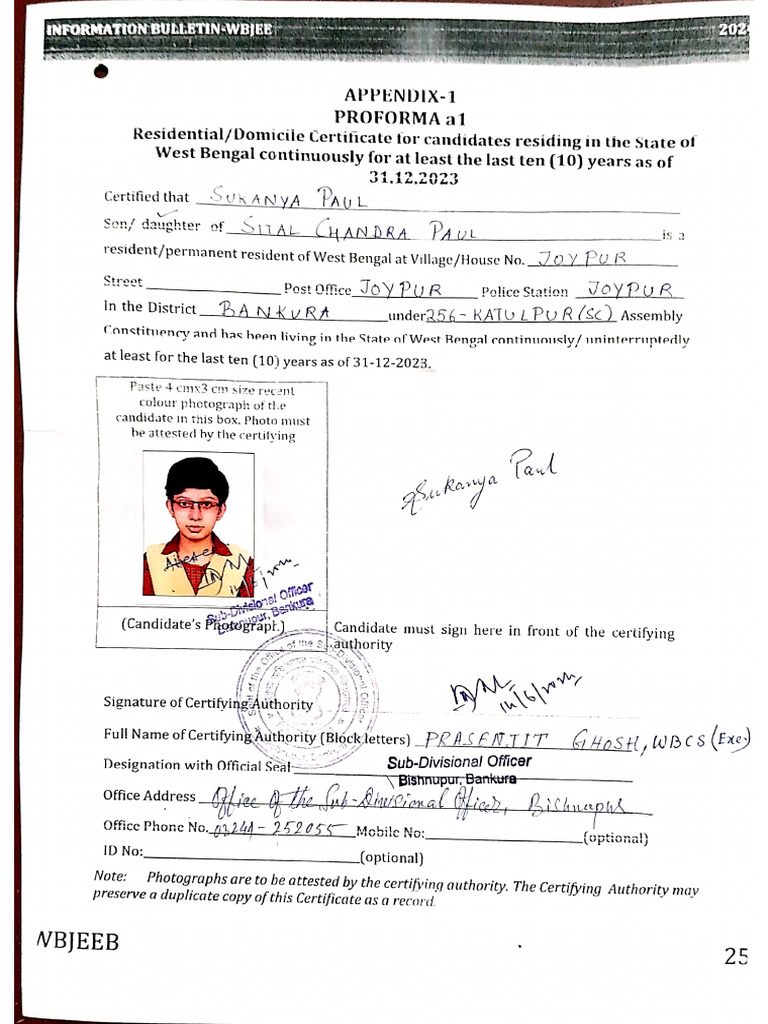 INFORMATION BULLETIN-WBJEE 202
APPENDIX-1
PROFORMA a1
Residential/Domicile Certificate for candidates residing in the State of
West Bengal continuously for at least the last ten (10) years as of
31.12.2023
Certified that SUKANYA PAUL
Son/ daughter of SITAL CHANDRA PAUL is a
resident/permanent resident of West Bengal at Village/House No. JOYPUR
Street Post Office JOYPUR Police Station JOYPUR
In the District BANKURA under 256-KATULPUR(SC) Assembly
Constituency and has been living in the State of West Bengal continuously/ uninterruptedly
at least for the last ten (10) years as of 31-12-2023.
Paste 4 cmx3 cm size recent
colour photograph of the
candidate in this box. Photo must
be attested by the certifying
Sukanya Paul
Sub-Divisional Officer
Bishnupur, Bankura
(Candidate's Photograph.)
Candidate must sign here in front of the certifying
authority
Signature of Certifying Authority
Full Name of Certifying Authority (Block letters) PRASENJIT GHOSH, WBCS (Exe)
Designation with Official Seal Sub-Divisional Officer
Bishnupur, Bankura
Office Address Office of the Sub-Divisional Officer, Bishnupur
Office Phone No. 03244-252055 Mobile No: (optional)
ID No: (optional)
Note: Photographs are to be attested by the certifying authority. The Certifying Authority may
preserve a duplicate copy of this Certificate as a record.
WBJEEB
25